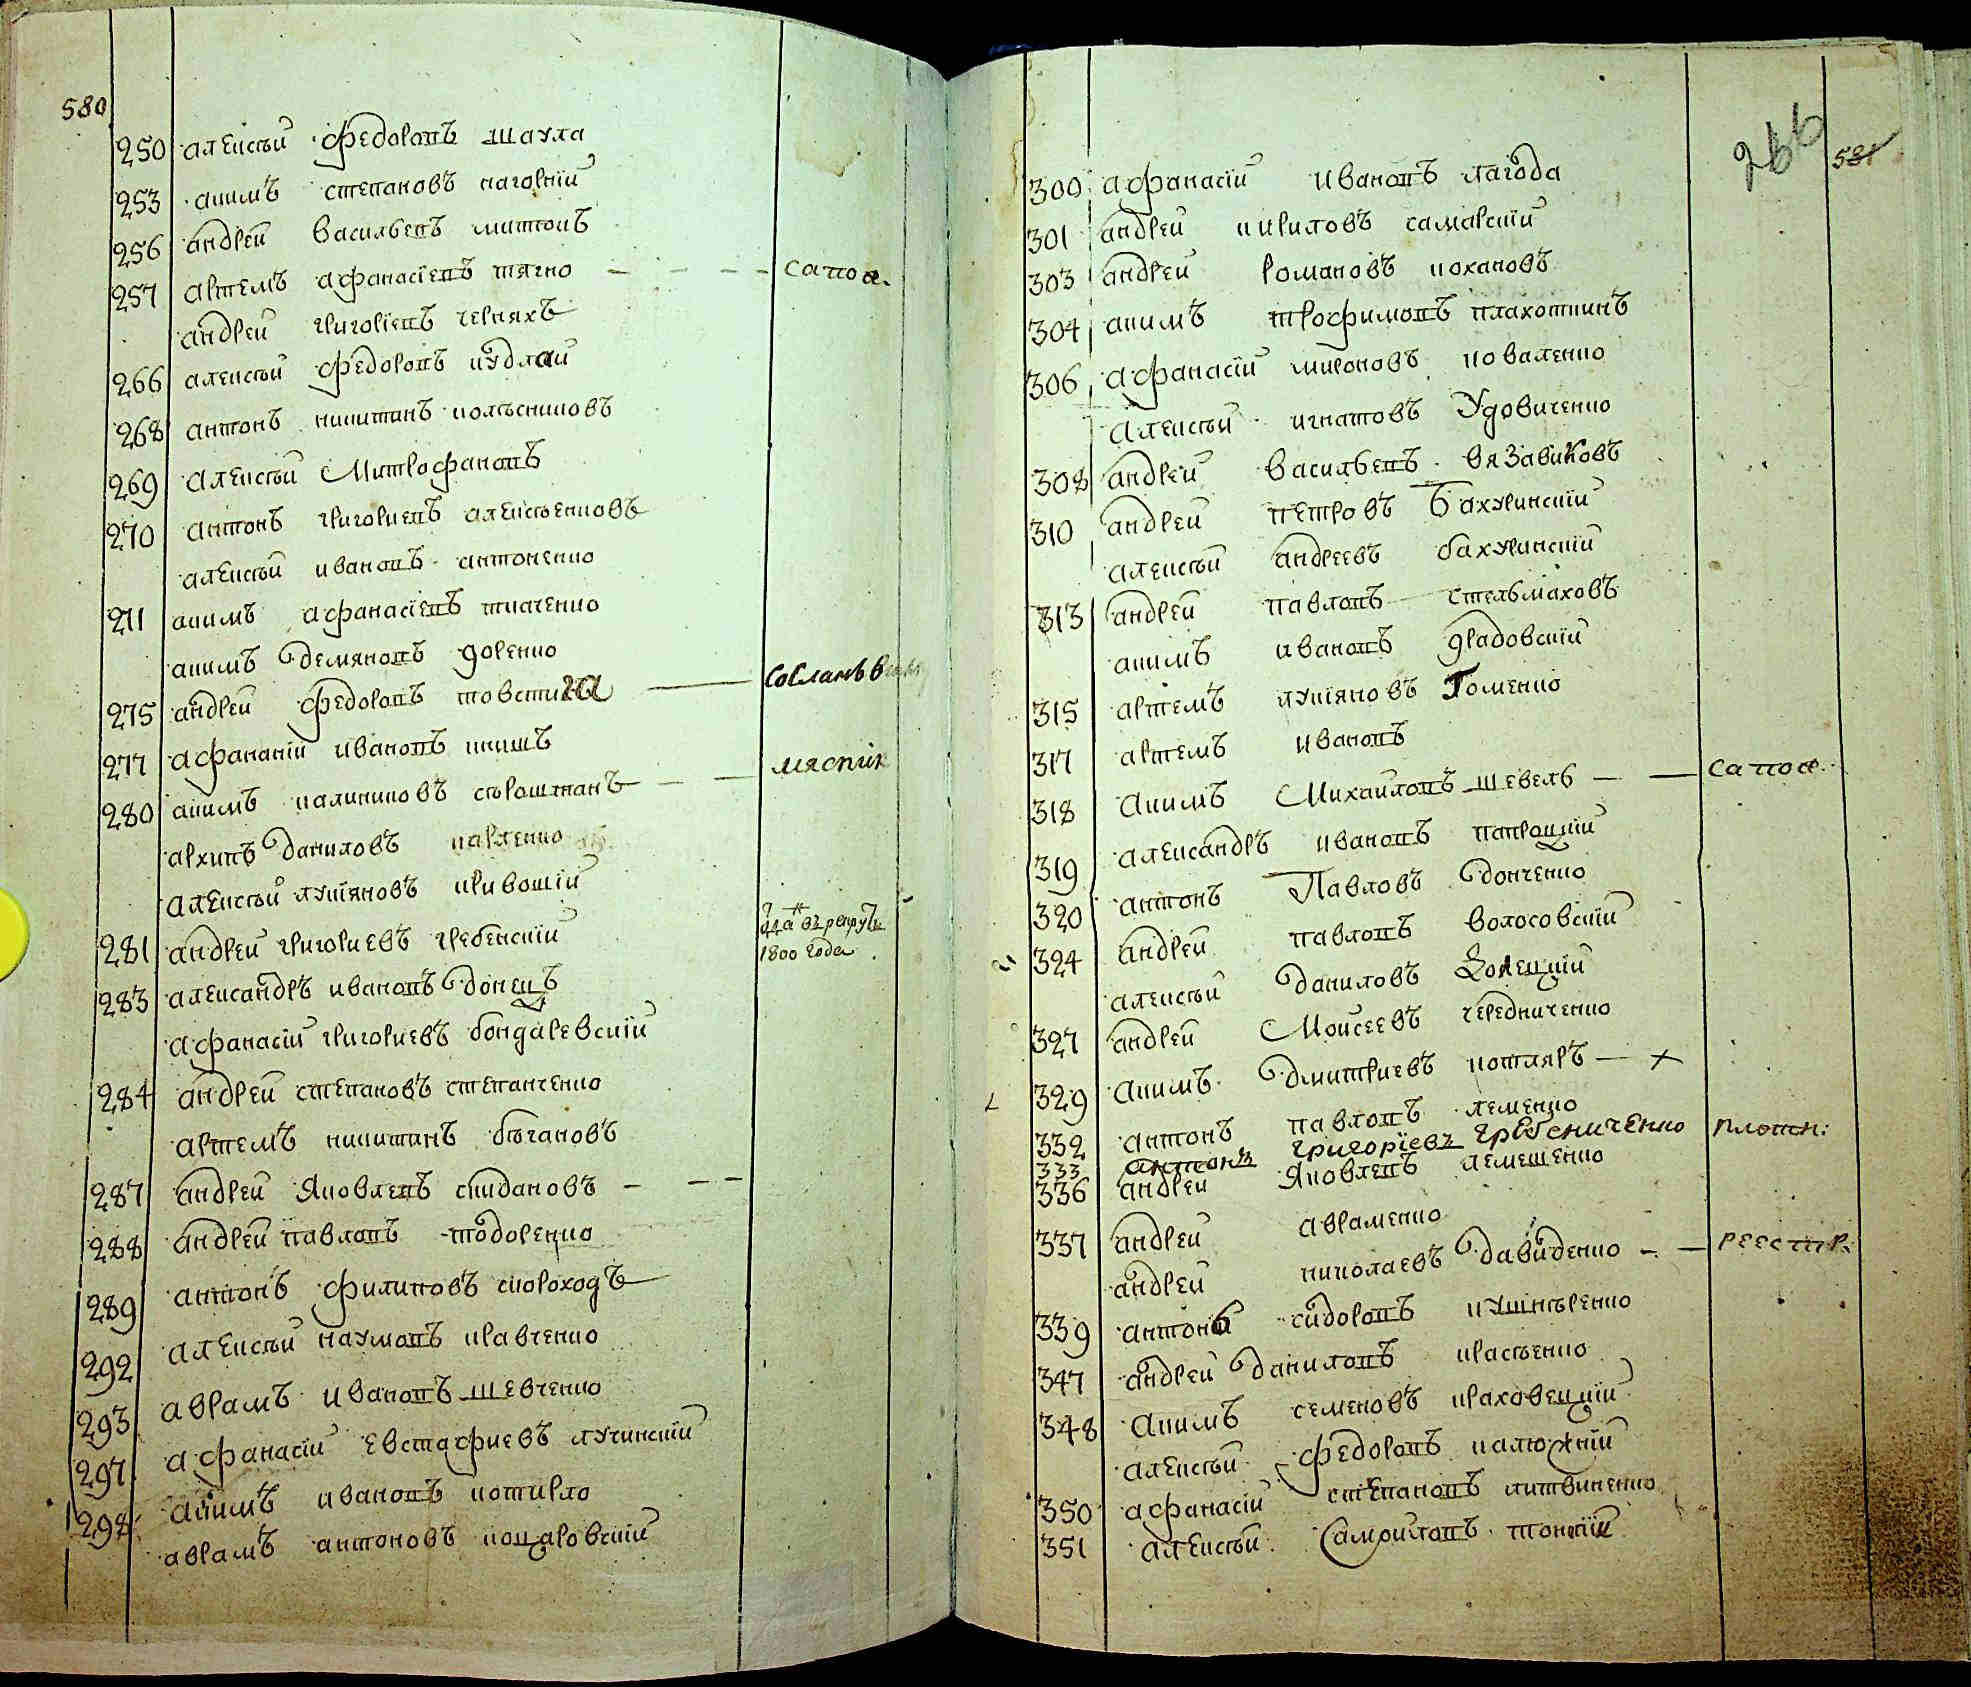 580
250 алексѣй федоровъ шаула
253 акимъ степановъ нагорній
256 андрей васильевъ миткопъ
257 артемъ афанасіевъ тягно — сапож.
андрей григоріевъ чернякъ
266 алексѣй федоровъ кудлай
268 антонъ никитинъ колѣсниковъ
269 алексѣй митрофановъ
270 антонъ григориевъ алексѣенковъ
алексѣй ивановъ антоненко
271 акимъ афанасіевъ ткаченко
акимъ демяновъ доренко
275 андрей федоровъ товстика —
277 афанасій ивановъ книшъ
280 акимъ калиниковъ сѣроштанъ — мясник
архипъ даниловъ павленко
алексѣй лукіяновъ кривошій
281 андрей григориевъ гребенскій
1800 года
283 александръ ивановъ донецъ
афанасій григориевъ бондаревскій
284 андрей степановъ степанченко
артемъ никитинъ бѣгановъ
287 андрей яковлевъ скидановъ —
288 андрей павловъ тодоренко
289 антонъ филиповъ скороходъ
292 алексѣй наумовъ кравченко
293 аврамъ ивановъ шевченко
297 афанасій евстафиевъ лучинскій
298 акимъ ивановъ котирло
аврамъ антоновъ коцаровскій
266 581
300 афанасій ивановъ лагода
301 андрей кириловъ самарскій
303 андрей романовъ кохановъ
304 акимъ трофимовъ плахотникъ
306 афанасій мироновъ коваленко
алексѣй игнатовъ удовиченко
308 андрей васильевъ вязавиковъ
310 андрей петровъ бахуринскій
алексѣй андреевъ бахуринскій
313 андрей павловъ стельмаховъ
акимъ ивановъ градовскій
315 артемъ лукіяновъ гоменко
317 артемъ ивановъ
318 акимъ михайловъ шевель — сапож.
319 александръ ивановъ папроцкій
320 антонъ павловъ донченко
324 андрей павловъ волосовскій
алексѣй даниловъ
327 андрей моисеевъ чередниченко
329 акимъ дмитриевъ котляръ — х
332 антонъ павловъ леменко
333 антонъ григоріевъ гребениченко плотн:
336 андрей яковлевъ лемешенко
337 андрей авраменко
андрей николаевъ давиденко — реестр.
339 антонъ сидоровъ кушнѣренко
347 андрей даниловъ красѣенко
348 акимъ семеновъ краховецкій
алексѣй федоровъ калюжній
350 афанасій степановъ литвиненко
351 алексѣй самойловъ тонкій